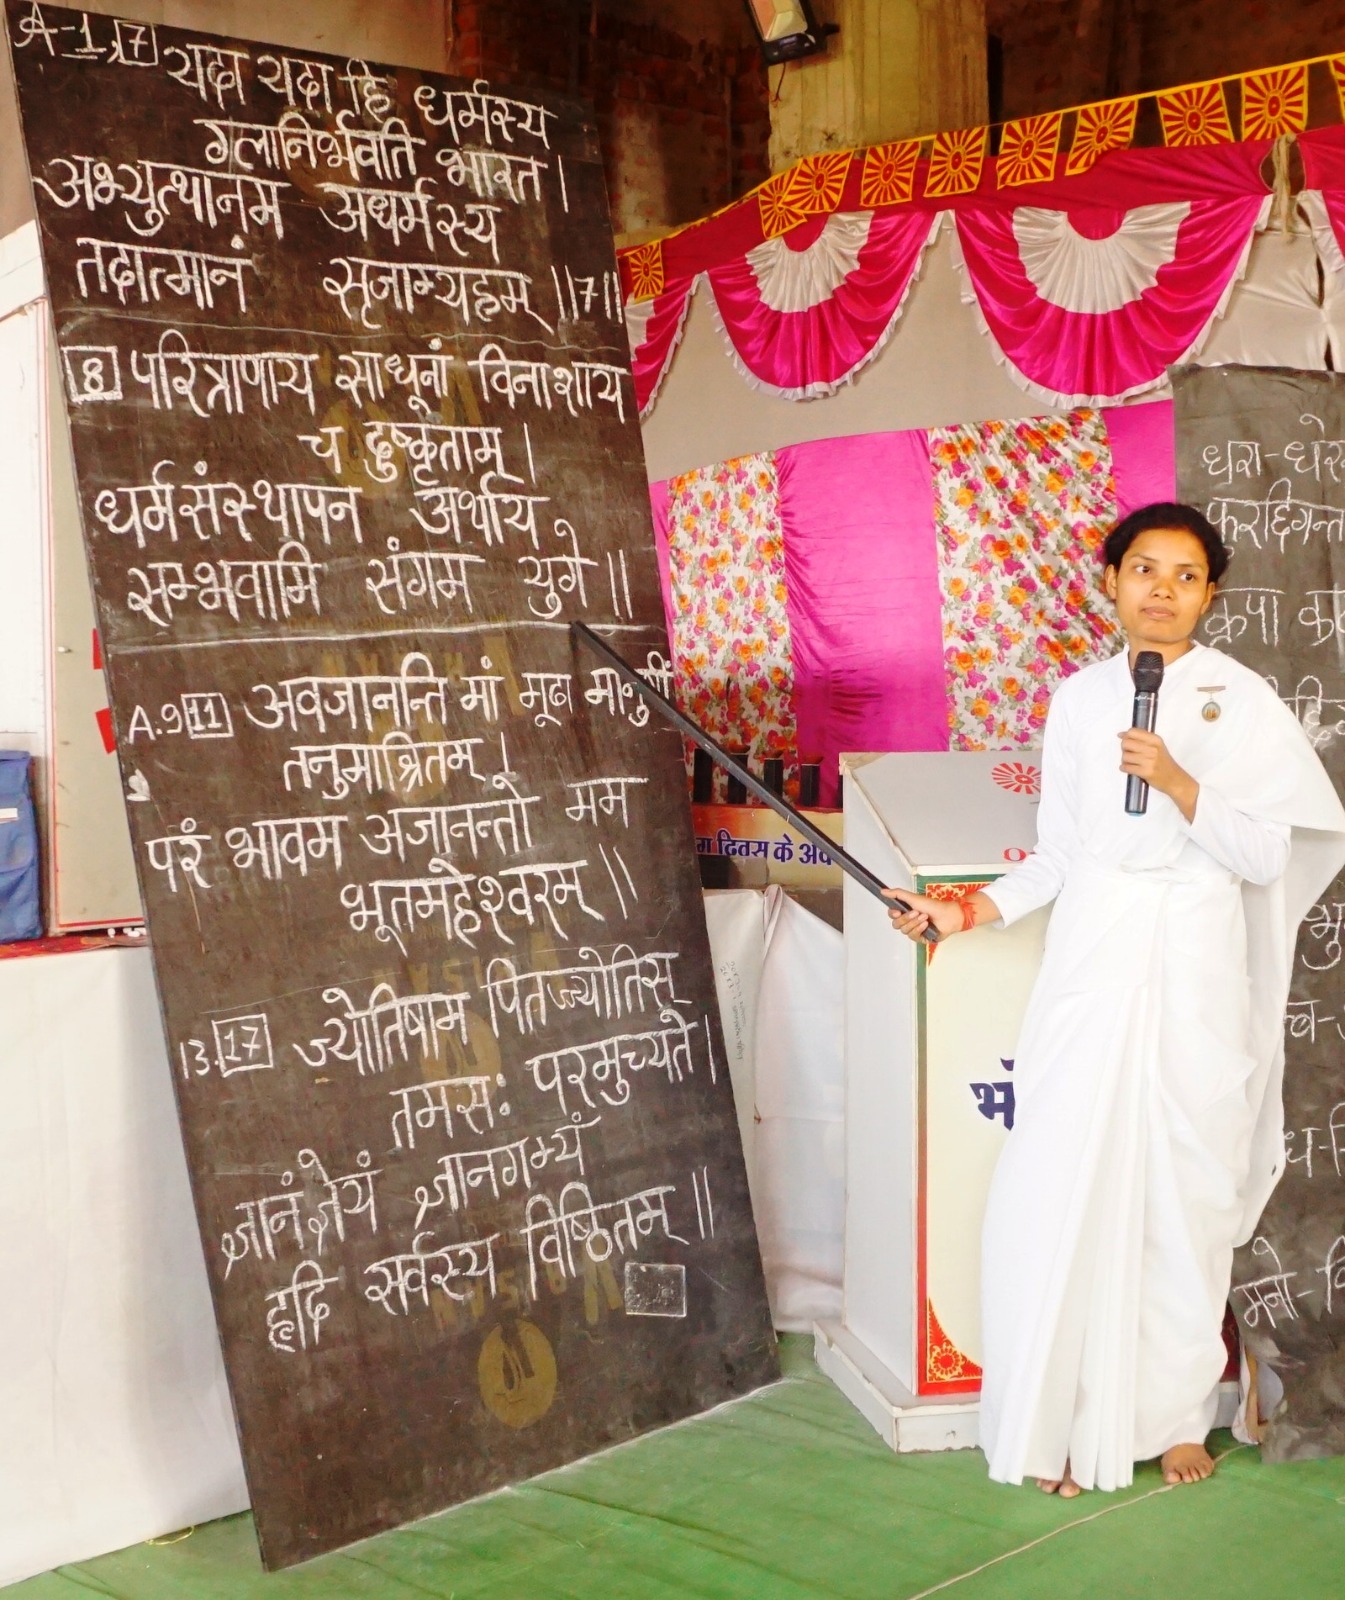 A-1, 7 यदा यदा हि धर्मस्य
गलानिर्भवति भारत।
अभ्युत्थानम अधर्मस्य
तदात्मानं सृजाम्यहम् ॥7॥
8 परित्राणाय साधूनां विनाशाय
च दुष्कृताम्।
धर्मसंस्थापन अर्थाय
सम्भवामि संगम युगे॥
A.9 11 अवजानन्ति मां मूढा मानुषीं
तनुमाश्रितम्।
परं भावम अजानन्तो मम
भूतमहेश्वरम्॥
13. 17 ज्योतिषाम पितज्योतिस्
तमसः परमुच्यते।
ज्ञानं ज्ञेयं ज्ञानगम्यं
हृदि सर्वस्य विष्ठितम्॥
दिवस के
धरा-
कृपा
मनो-